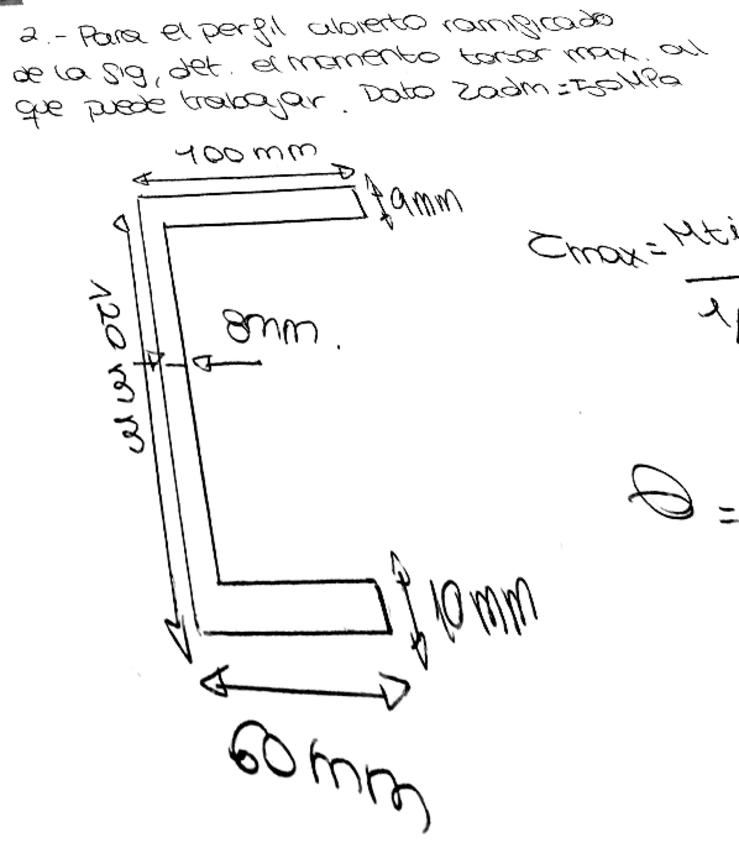 2.- Para el perfil abierto ramificado
de la sig, det. el momento torsor max. al
que puede trabajar. Dato Zadm = 50 MPa
100 mm
9mm
τmax = Mti
8mm.
120 mm
θ =
10mm
60mm